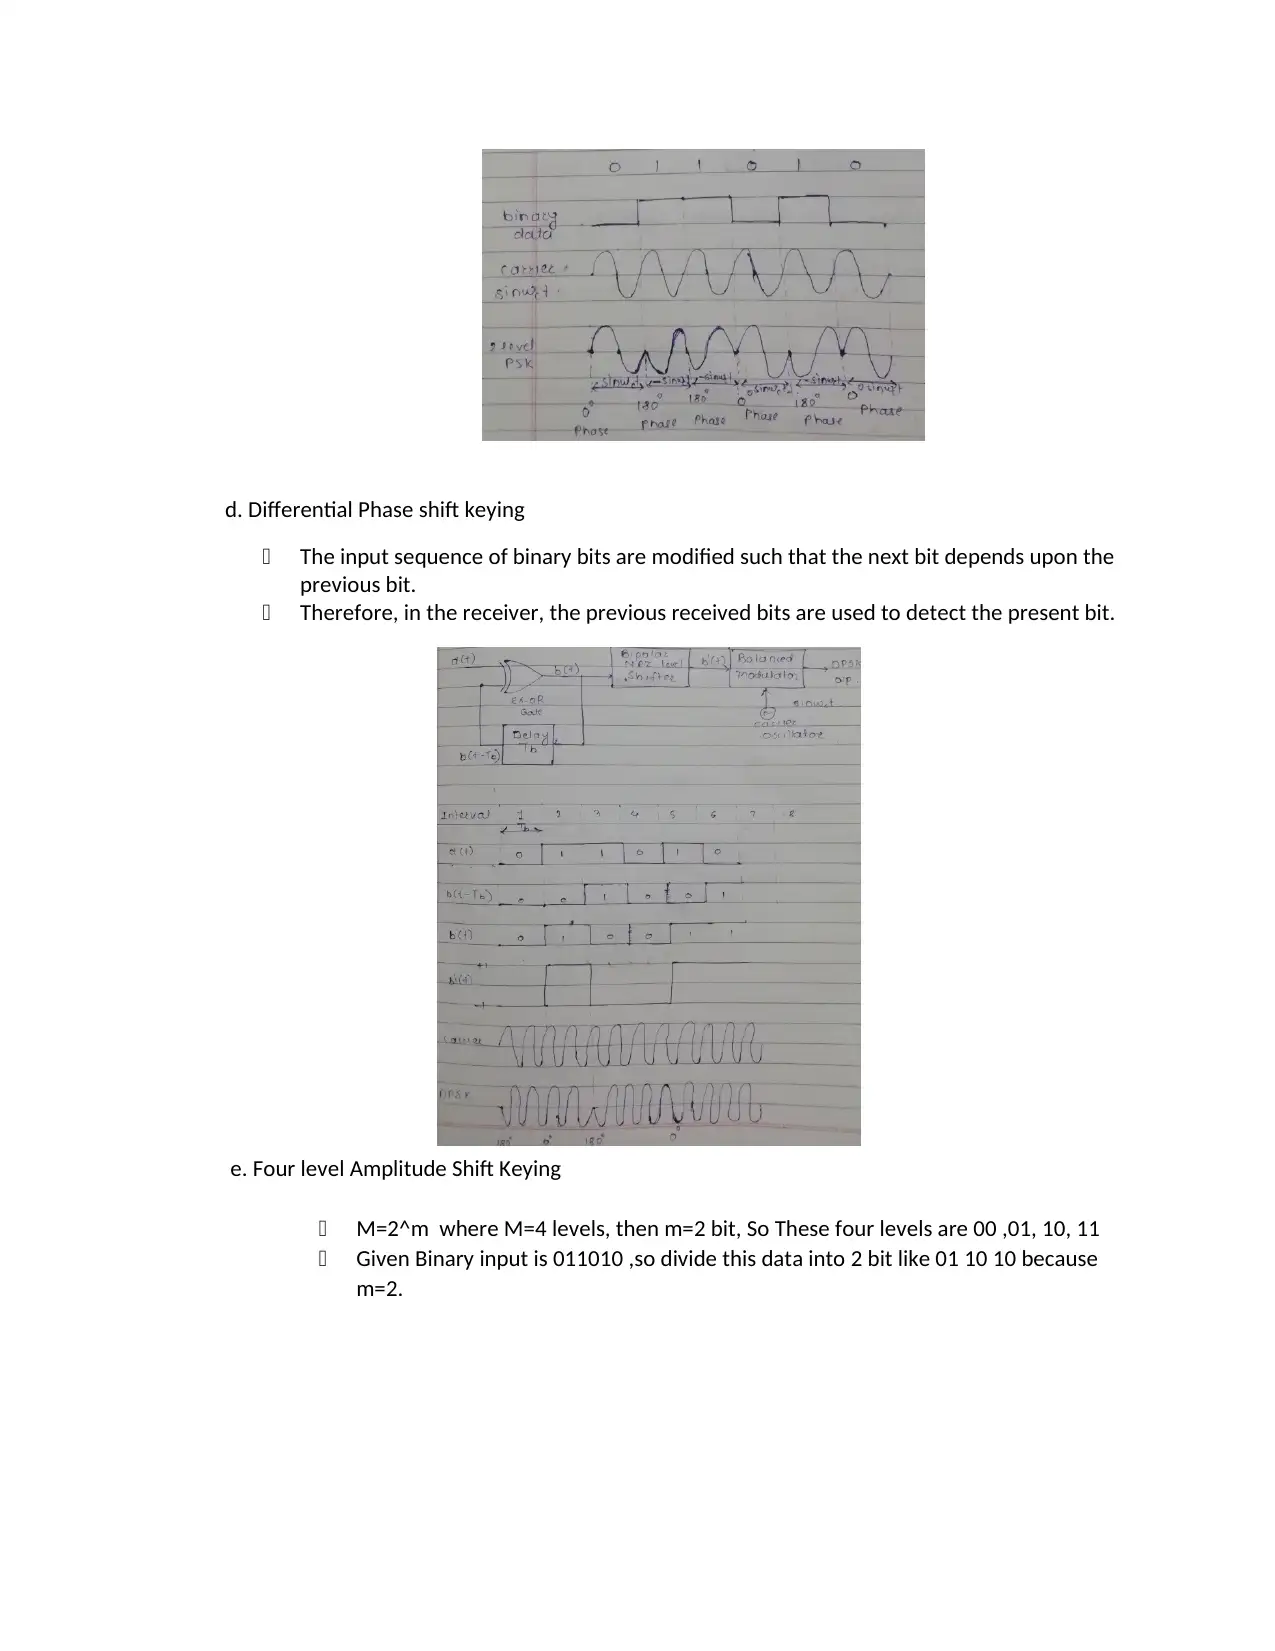 0 1 1 0 1 0
binary
data
carrier
sinωct
2 level
PSK
sinωct -sinωct -sinωct sinωct -sinωct sinωct
0° 180° 180° 0° 180° 0°
Phase Phase Phase Phase Phase Phase
d. Differential Phase shift keying
The input sequence of binary bits are modified such that the next bit depends upon the
previous bit.
Therefore, in the receiver, the previous received bits are used to detect the present bit.
d(t) b(t) Bipolar NRZ level Shifter b'(t) Balanced modulator DPSK O/P
EX-OR
Gate
sinωct
carrier
oscillator
Delay
Tb
b(t-Tb)
Interval 1 2 3 4 5 6 7 8
Tb
d(t) 0 1 1 0 1 0
b(t-Tb) 0 0 1 0 0 1
b(t) 0 1 0 0 1 1
+1
b'(t)
-1
carrier
DPSK
180° 0° 180° 0°
e. Four level Amplitude Shift Keying
M=2^m where M=4 levels, then m=2 bit, So These four levels are 00 ,01, 10, 11
Given Binary input is 011010 ,so divide this data into 2 bit like 01 10 10 because
m=2.